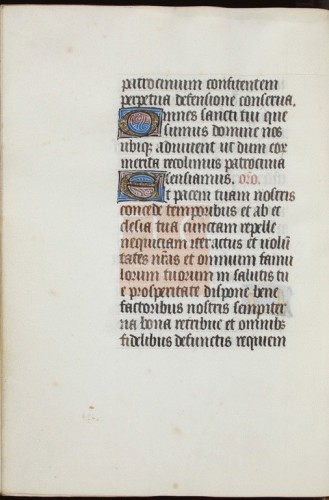 patrocinium confitentem
perpetua defensione conserua.
Omnes sancti tui que
sumus domine nos
ubiq; adiuuent ut dum eor
merita recolimus patrocinia
sensiamus. oro.
Et pacem tuam nostris
concede temporibus et ab ec
clesia tua cunctam repelle
nequiciam iter actus et uolūn
tates nr̄as et omnium famu
lorum tuorum in salutis tu
e prosperitate dispone bene
factoribus nostris sempiter
na bona retribue et omnibs
fidelibus defunctis requiem